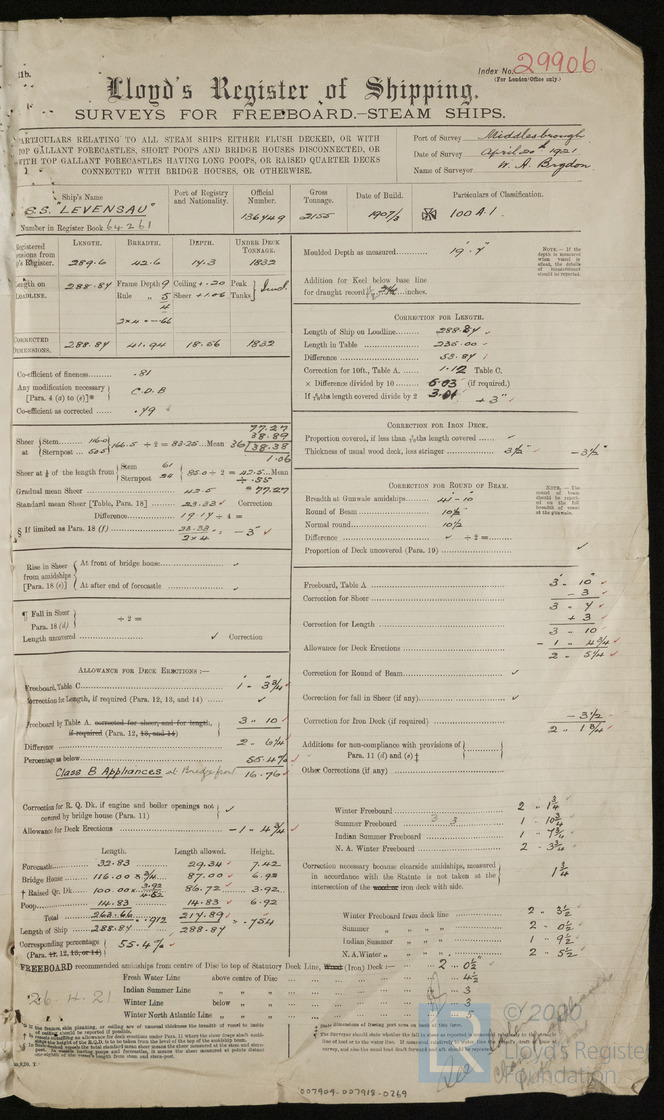 1b.
Index No. 29906
(For London Office only.)
Lloyd's Register of Shipping.
SURVEYS FOR FREEBOARD.—STEAM SHIPS.
PARTICULARS RELATING TO ALL STEAM SHIPS EITHER FLUSH DECKED, OR WITH
TOP GALLANT FORECASTLES, SHORT POOPS AND BRIDGE HOUSES DISCONNECTED, OR
WITH TOP GALLANT FORECASTLES HAVING LONG POOPS, OR RAISED QUARTER DECKS
CONNECTED WITH BRIDGE HOUSES, OR OTHERWISE.
Port of Survey Middlesbrough
Date of Survey April 20th 1921
Name of Surveyor W. A. Brydon
Ship's Name Port of Registry and Nationality. Official Number. Gross Tonnage. Date of Build. Particulars of Classification.
S.S. "LEVENSAU" 136449 2155 1907/3 100 A.1.
Number in Register Book 64261
LENGTH. BREADTH. DEPTH. UNDER DECK TONNAGE.
289.6 42.6 14.3 1832
LOADLINE. 288.84 Frame Depth 9 Ceiling + .20 Peak Tanks
Rule " 5 Sheer + 1.06
4
2 x 4 = - .66
CORRECTED DIMENSIONS. 288.84 41.94 18.56 1832
Co-efficient of fineness .81
Any modification necessary [Para. 4 (a) to (e)]* C.D.B
Co-efficient as corrected .79
77.27
38.89
Sheer at { Stem 116.0 Sternpost 50.5 } 166.5 ÷ 2 = 83.25 Mean 36 38.38
1.06
Sheer at 1/8 of the length from { Stem 61 Sternpost 24 } 85.0 ÷ 2 = 42.5 Mean
÷ .55
Gradual mean Sheer 42.5 = 77.27
Standard mean Sheer [Table, Para. 18] 23.33 Correction
Difference 19.17 ÷ 4 =
§ If limited as Para. 18 (f) 23.33 / 2x4 = - 3"
Rise in Sheer from amidships [Para. 18 (e)] { At front of bridge house
At after end of forecastle
¶ Fall in Sheer Para. 18 (d) } ÷ 2 =
Length uncovered Correction
ALLOWANCE FOR DECK ERECTIONS:—
Freeboard, Table C 1 - 3 3/4
Correction for Length, if required (Para. 12, 13, and 14)
Freeboard by Table A. corrected for sheer, and for length, if required (Para. 12, 13, and 14) 3 - 10
Difference 2 - 6 1/4
Percentage as below 55.4%
Class B Appliances at Bridge front 16.76
Correction for R. Q. Dk. if engine and boiler openings not covered by bridge house (Para. 11)
Allowance for Deck Erections - 1 - 4 3/4
Length. Length allowed. Height.
Forecastle 32.83 29.34 7.42
Bridge House 116.00 x 3/4 87.00 6.92
† Raised Qr. Dk. 100.00 x 3.92/4.52 86.72 3.92
Poop 14.83 14.83 6.92
Total 263.66 = .912 217.89 = .754
Length of Ship 288.84 288.84
Corresponding percentage (Para. 11, 12, 13, or 14) 55.4%
Moulded Depth as measured 19'. 7"
NOTE.—If the depth is measured when vessel is afloat, the details of measurement should be reported.
Addition for Keel below base line
for draught record inches.
CORRECTION FOR LENGTH.
Length of Ship on Loadline 288.84
Length in Table 235.00
Difference 53.84
Correction for 10ft., Table A. 1.12 Table C.
× Difference divided by 10 6.03 (if required.)
If 6/10ths length covered divide by 2 3.01 + 3"
CORRECTION FOR IRON DECK.
Proportion covered, if less than 7/10ths length covered
Thickness of usual wood deck, less stringer 3 1/2 - 3 1/2"
CORRECTION FOR ROUND OF BEAM.
Breadth at Gunwale amidships 41-10
Round of Beam 10 1/2
Normal round 10 1/2
Difference ÷ 2 =
Proportion of Deck uncovered (Para. 19)
NOTE.—The round of beam should be reported, and on the full breadth of vessel at the gunwale.
Freeboard, Table A 3 - 10
Correction for Sheer - 3
3 - 7
Correction for Length + 3
3 - 10
Allowance for Deck Erections - 1 - 4 3/4
2 - 5 1/4
Correction for Round of Beam
Correction for fall in Sheer (if any)
Correction for Iron Deck (if required) - 3 1/2
2 - 1 3/4
Additions for non-compliance with provisions of Para. 11 (d) and (e) ‡
Other Corrections (if any)
Winter Freeboard 2 - 1 3/4
Summer Freeboard 1 - 10 3/4
Indian Summer Freeboard 1 - 7 3/4
N. A. Winter Freeboard 2 - 3 3/4
Correction necessary because clearside amidships, measured
in accordance with the Statute is not taken at the 1 3/4
intersection of the wood or iron deck with side.
Winter Freeboard from deck line 2 - 3 1/2
Summer " " " " 2 - 0 1/2
Indian Summer " " " 1 - 9 1/2
N. A. Winter " " " " 2 - 5 1/2
FREEBOARD recommended amidships from centre of Disc to top of Statutory Deck Line, Wood (Iron) Deck:— 2 - 0 1/2"
Fresh Water Line above centre of Disc 4 1/2
Indian Summer Line " " 3
Winter Line below " " 3
Winter North Atlantic Line " " 5
26.4.21
© 2020
Lloyd's Register
Foundation
007909-007918-0269